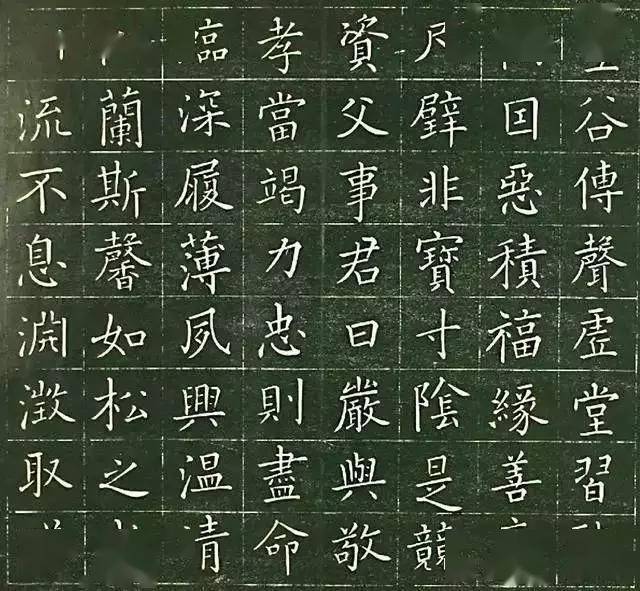 谷傳聲虛堂習
因惡積福緣善
尺璧非寶寸陰是競
資父事君曰嚴與敬
孝當竭力忠則盡命
臨深履薄夙興温凊
蘭斯馨如松之
流不息淵澄取